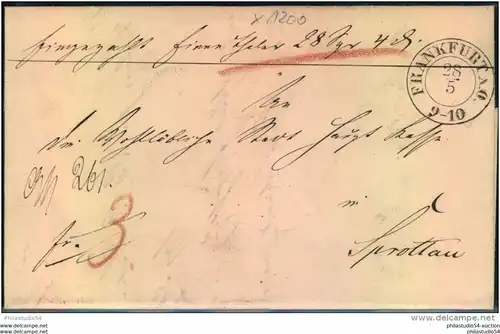 x 1200
Eingezahlt Einen Thaler 28 Sgr 4 d.
FRANKFURT A.O.
28
5
9-10
An
Die Wohllöbliche Stadt Haupt Kasse
261.
in
fr.
3
Sprottau
philastudio54 - Philastudio54
delcampe.net
philastudio54-auctions
philastudio54.com